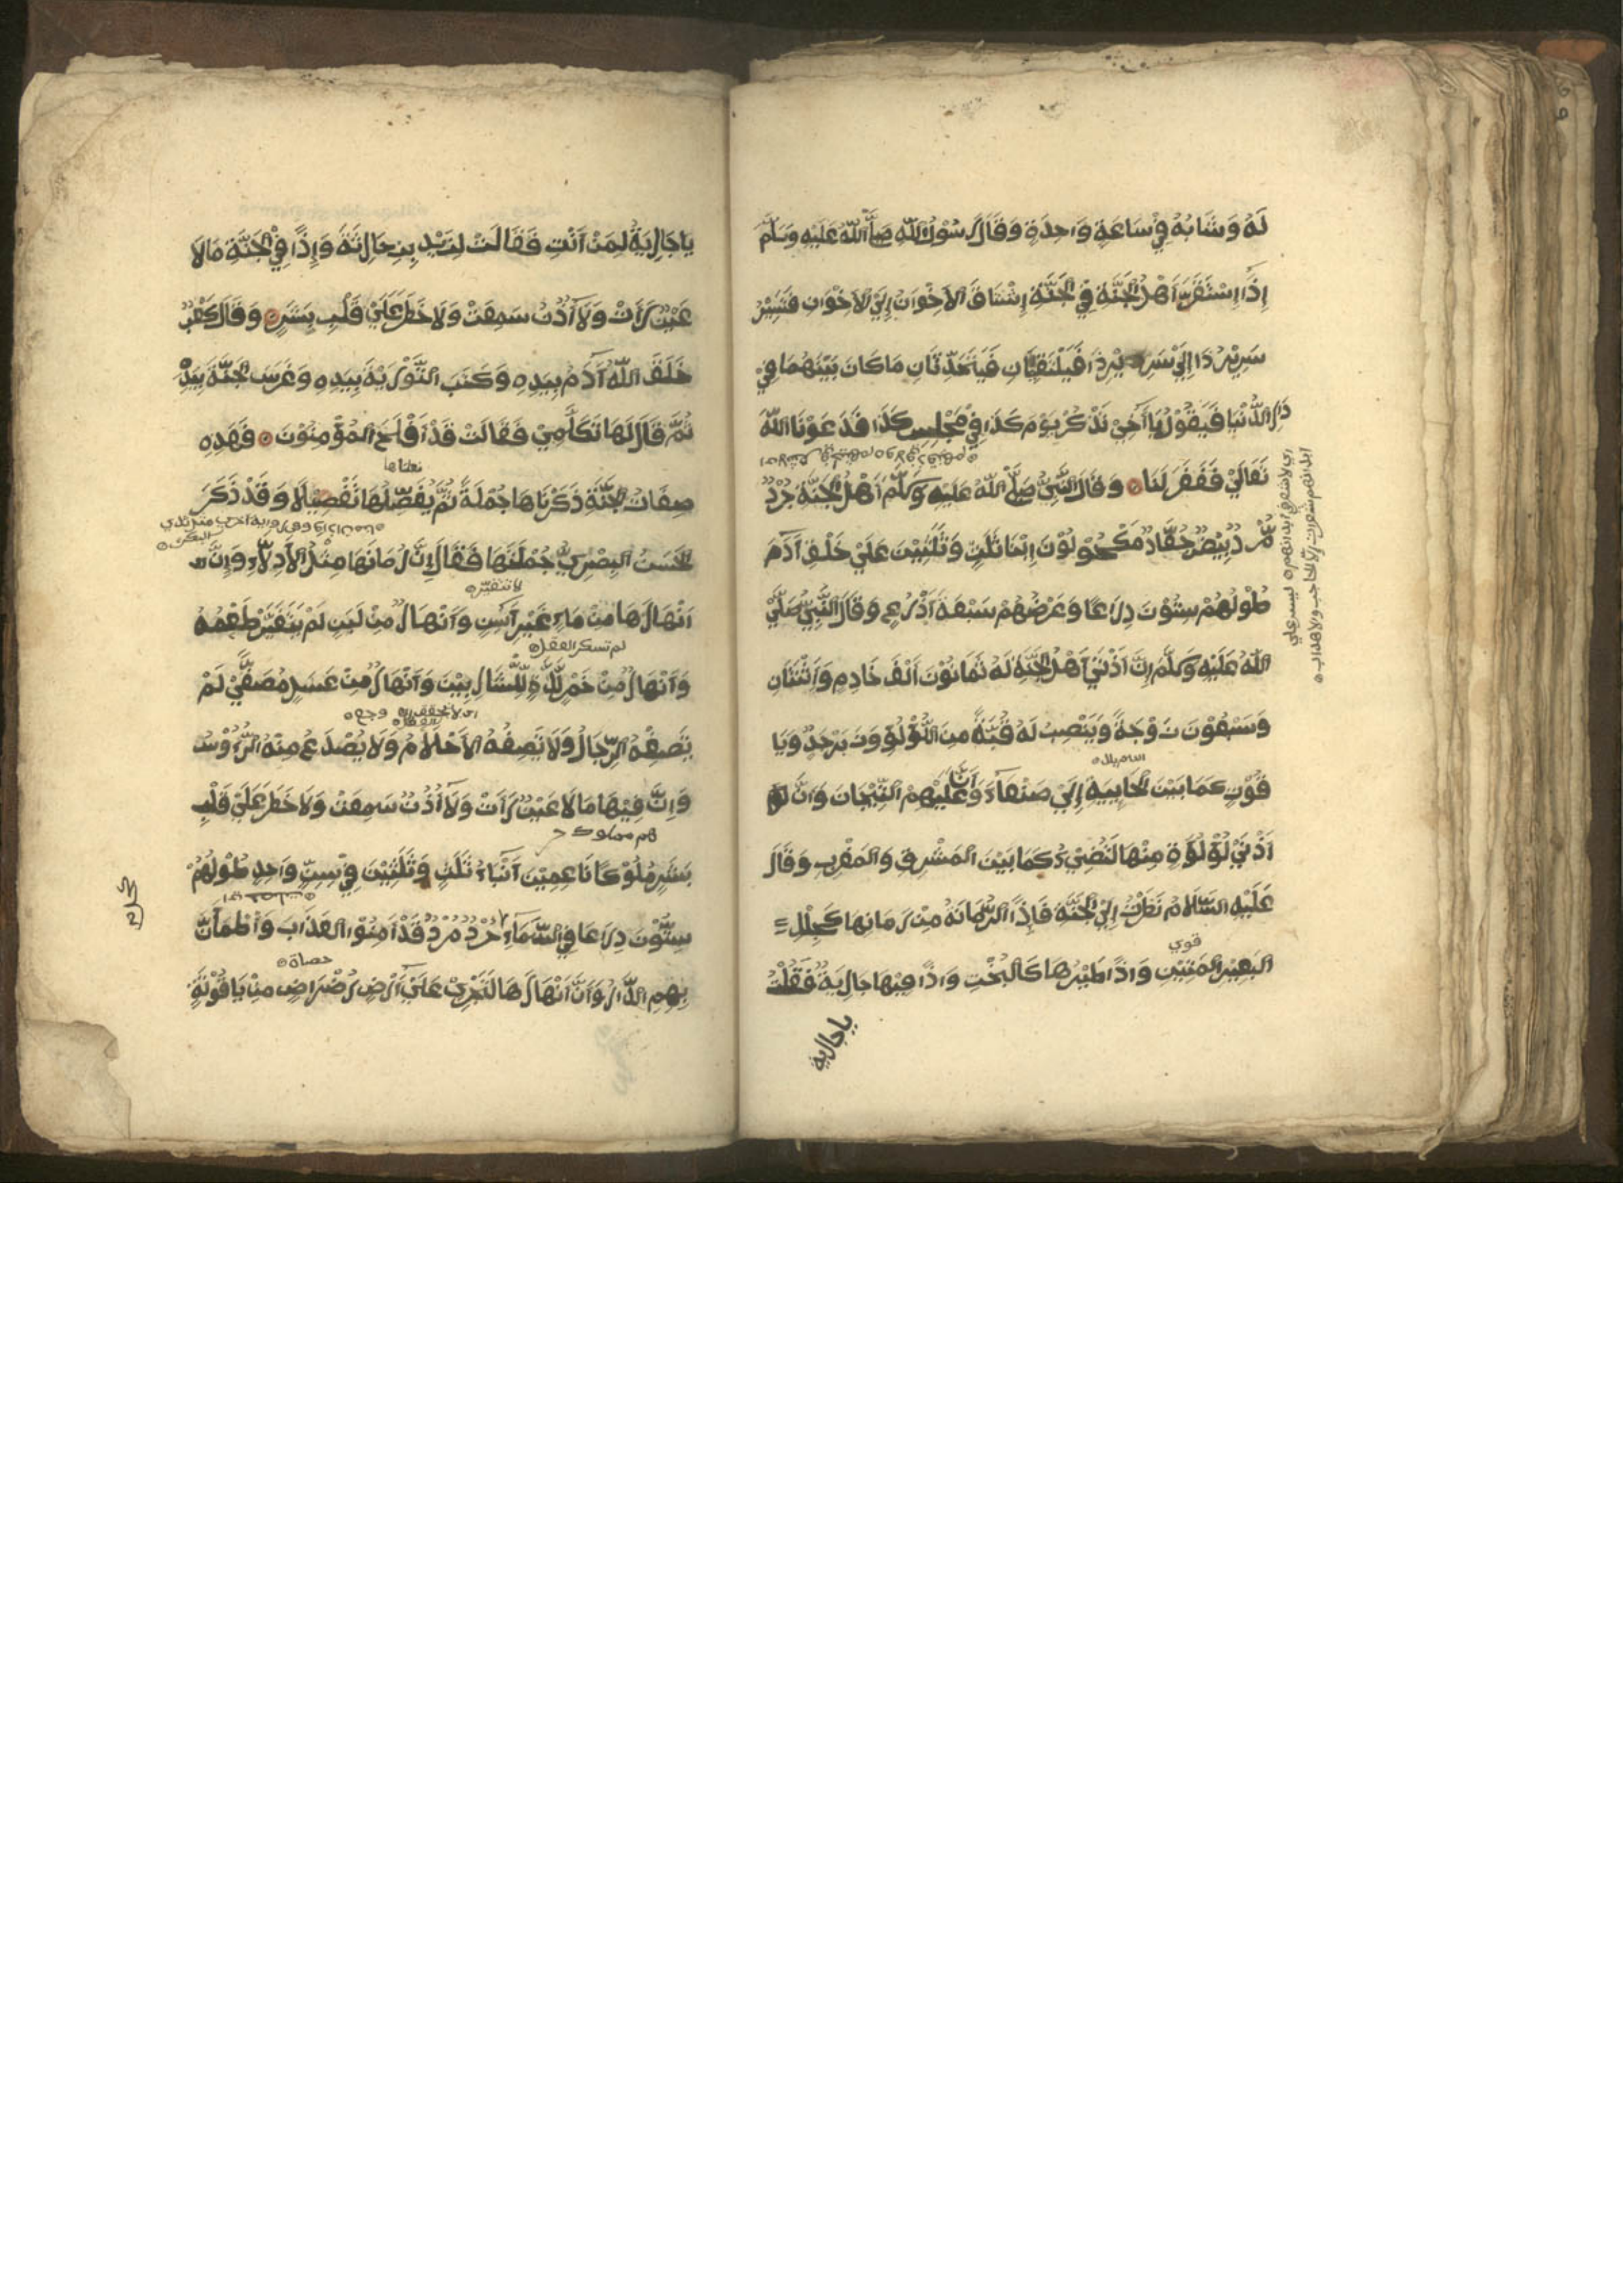 لَهُ وَشَابُهُ فِي سَاعَةٍ وَاحِدَةٍ وَقَالَ رَسُوْلُ اللّٰهِ صَلَّى اللّٰهُ عَلَيْهِ وَسَلَّمَ
إِذَا اِسْتَقَرَّ اَهْلُ الْجَنَّةِ فِي الْجَنَّةِ اِشْتَاقَ الْاِخْوَانُ اِلَيَ الْاِخْوَانِ فَتَسِيْرُ
سَرِيْرُ ذَا اِلَيْ سَرِيْرِ ذَا فَيَلْتَقِيَانِ فَيَتَحَدَّثَانِ مَا كَانَ بَيْنَهُمَا فِيْ
دَارِ الدُّنْيَا فَيَقُوْلُ يَا اَخِيْ تَذْكُرُ يَوْمَ كَذَا فِيْ مَجْلِسِ كَذَا فَدَعَوْنَا اللّٰهَ
تَعَالَيْ فَغَفَرَ لَنَا وَقَالَ النَّبِيُّ صَلَّى اللّٰهُ عَلَيْهِ وَسَلَّمَ اَهْلُ الْجَنَّةِ جُرْدٌ
مُرْدٌ بِيْضٌ جِعَادٌ مَكْحُوْلُوْنَ اِبْنَا ثَلٰثٍ وَثَلٰثِيْنَ عَلَيْ خَلْقِ اٰدَمَ
طُوْلُهُمْ سِتُّوْنَ ذِرَاعًا وَعَرْضُهُمْ سَبْعَةُ اَذْرُعٍ وَقَالَ النَّبِيُّ صَلَّيْ
اللّٰهُ عَلَيْهِ وَسَلَّمَ اِنَّ اَدْنَيْ اَهْلِ الْجَنَّةِ لَهُ ثَمَانُوْنَ اَلْفَ خَادِمٍ وَاثْنَتَانِ
وَسَبْعُوْنَ زَوْجَةً وَيَنْصِبُ لَهُ قُبَّةً مِنَ اللُّؤْلُؤِ وَزَبَرْجَدٍ وَيَا
الشام بلد
قُوْتٍ كَمَا بَيْنَ الْجَابِيَةِ اِلَيْ صَنْعَاءَ وَاَنَّ عَلَيْهِمُ التِّيْجَانَ وَاَنَّ
اَدْنَيْ لُؤْلُؤَةٍ مِنْهَا لَتُضِيْءُ كَمَا بَيْنَ الْمَشْرِقِ وَالْمَغْرِبِ وَقَالَ
عَلَيْهِ السَّلَامُ نَظَرْتُ اِلَيَ الْجَنَّةِ فَاِذًا الرُّمَّانَةُ مِنْ رُمَانِهَا كَجِلْدِ
قوي
الْبَعِيْرِ الْمَتِيْنِ وَاِذًا طَيْرُهَا كَالْبُخْتِ وَاِذًا فِيْهَا جَارِيَةٌ فَقُلْتُ
يا جارية
يَا جَارِيَةُ لِمَنْ اَنْتِ فَقَالَتْ لِزَيْدِ بْنِ حَارِثَةَ وَاِذًا فِيْ الْجَنَّةِ مَا لَا
عَيْنٌ رَأَتْ وَلَا اُذُنٌ سَمِعَتْ وَلَا خَطَرَ عَلَيْ قَلْبِ بَشَرٍ وَقَالَ كَعْبٌ
خَلَقَ اللّٰهُ اٰدَمَ بِيَدِهِ وَكَتَبَ التَّوْرٰيةَ بِيَدِهِ وَغَرَسَ الْجَنَّةَ بِيَدِهِ
ثُمَّ قَالَ لَهَا تَكَلَّمِيْ فَقَالَتْ قَدْ اَفْلَحَ الْمُؤْمِنُوْنَ فَهَذِهِ
صِفَاتُ الْجَنَّةِ ذَكَرْنَاهَا جُمْلَةً ثُمَّ يُفَصِّلُهَا تَفْصِيْلًا وَقَدْ ذَكَرَ
الْحَسَنُ الْبِصْرِيُّ جُمْلَتَهَا فَقَالَ اِنَّ رُمَانَهَا مِثْلُ الْاَدِلَاءِ وَاِنَّ
لا تتغير
اَنْهَارَهَا مِنْ مَاءٍ غَيْرِ اٰسِنٍ وَاَنْهَارٌ مِنْ لَبَنٍ لَمْ يَتَغَيَّرْ طَعْمُهُ
لم تسكر العقل
وَاَنْهَارٌ مِنْ خَمْرٍ لَذَّةٍ لِلشَّارِبِيْنَ وَاَنْهَارٌ مِنْ عَسَلٍ مُصَفًّيْ لَمْ
يَصِفْهُ الرِّجَالُ وَلَا تَصِفُهُ الْاَحْلَامُ وَلَا يُصْدَعُ مِنْهُ الرُّؤُوْسُ
وَاِنَّ فِيْهَا مَا لَا عَيْنٌ رَأَتْ وَلَا اُذُنٌ سَمِعَتْ وَلَا خَطَرَ عَلَيْ قَلْبِ
بَشَرٍ مُلُوْكًا نَاعِمِيْنَ اَبْنَاءُ ثَلٰثٍ وَثَلٰثِيْنَ فِيْ سِنٍّ وَاحِدٍ طُوْلُهُمْ
سِتُّوْنَ ذِرَاعًا فِي السَّمَاءِ جُرْدٌ مُرْدٌ قَدْ اَمِنُوْا الْعَذَابَ وَاطْمَأَنَّ
حصاة
بِهِمُ الدَّارُ وَاَنَّ اَنْهَارَهَا لَتَجْرِيْ عَلَيْ اَرْضٍ رَضْرَاضٍ مِنْ يَاقُوْتَةٍ